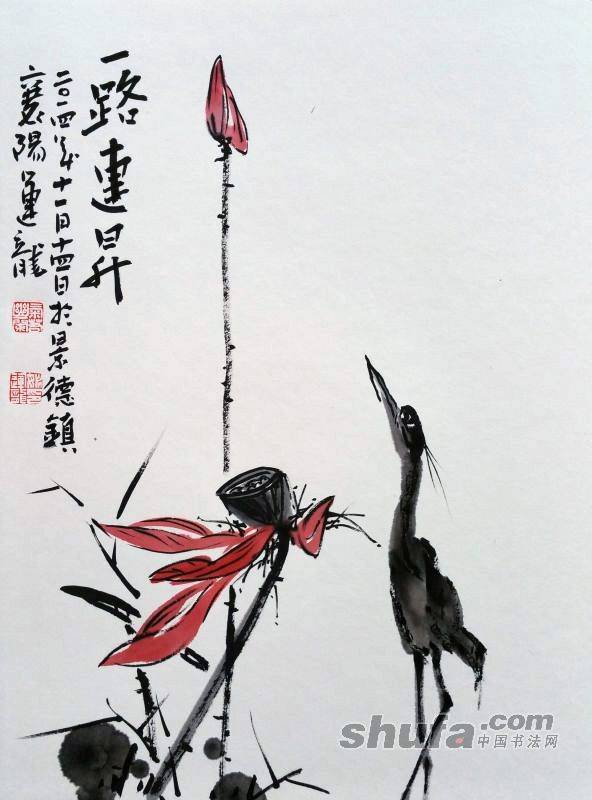 一路連昇
二〇一四年十一月十四日於景德鎮
襄陽運龍
shufa.com
中国书法网